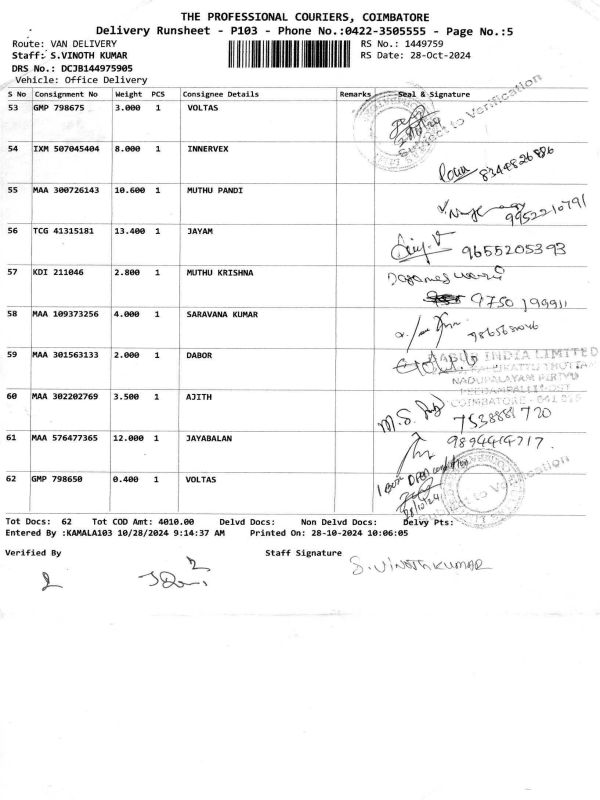 THE PROFESSIONAL COURIERS, COIMBATORE
Delivery Runsheet - P103 - Phone No.:0422-3505555 - Page No.:5
Route: VAN DELIVERY RS No.: 1449759
Staff: S.VINOTH KUMAR RS Date: 28-Oct-2024
DRS No.: DCJB144975905
Vehicle: Office Delivery
S No Consignment No Weight PCS Consignee Details Remarks Seal & Signature
53 GMP 798675 3.000 1 VOLTAS
28/10/24
Subject to Verification
54 IXM 507045404 8.000 1 INNERVEX
8344826886
55 MAA 300726143 10.600 1 MUTHU PANDI
9952210791
56 TCG 41315181 13.400 1 JAYAM
9655205393
57 KDI 211046 2.800 1 MUTHU KRISHNA
9750199911
58 MAA 109373256 4.000 1 SARAVANA KUMAR
59 MAA 301563133 2.000 1 DABOR
DABUR INDIA LIMITED
NADUPALAYAM PIRIVU
PEEDAMPALLI POST
COIMBATORE - 641 016
60 MAA 302202769 3.500 1 AJITH
7538881720
61 MAA 576477365 12.000 1 JAYABALAN
9894414717.
62 GMP 798650 0.400 1 VOLTAS
1 Box Open condition
28/10/24
Subject to Verification
Tot Docs: 62 Tot COD Amt: 4010.00 Delvd Docs: Non Delvd Docs: Delvy Pts:
Entered By :KAMALA103 10/28/2024 9:14:37 AM Printed On: 28-10-2024 10:06:05
Verified By Staff Signature
S. VINOTH KUMAR